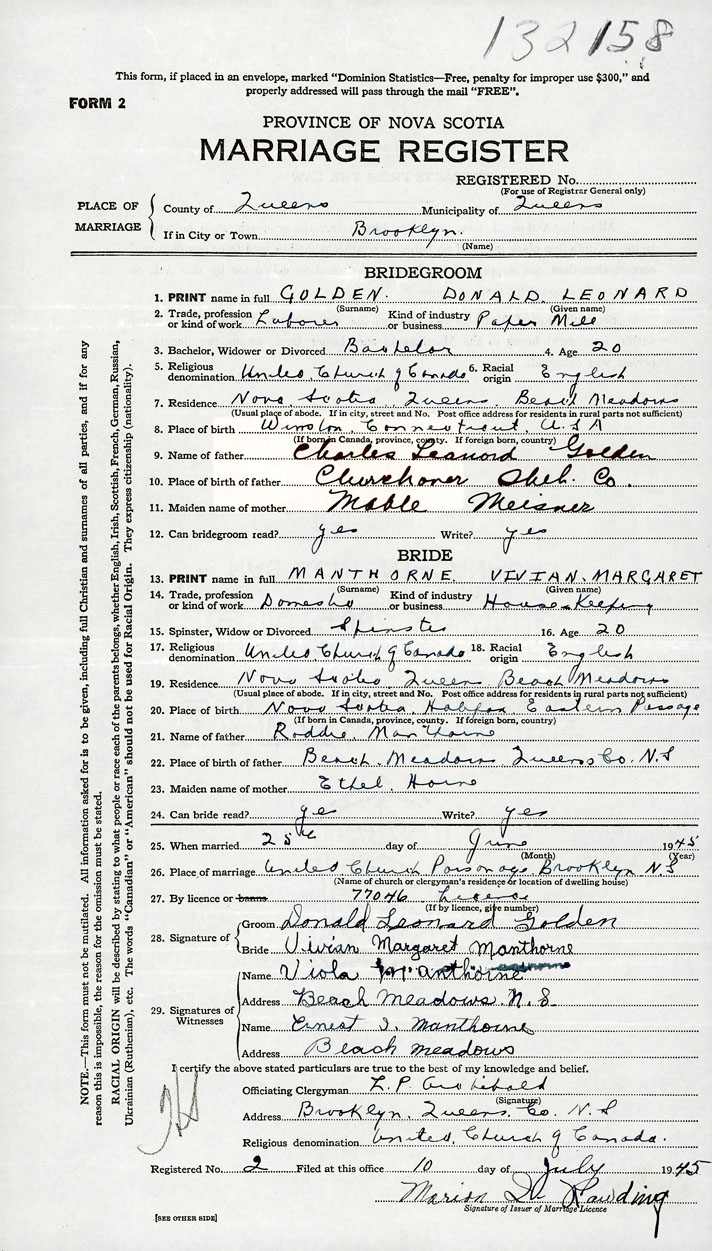 132158
This form, if placed in an envelope, marked “Dominion Statistics—Free, penalty for improper use $300,” and
properly addressed will pass through the mail “FREE”.
FORM 2
PROVINCE OF NOVA SCOTIA
MARRIAGE REGISTER
REGISTERED No.
(For use of Registrar General only)
PLACE OF MARRIAGE
County of Queens Municipality of Queens
If in City or Town Brooklyn.
(Name)
BRIDEGROOM
1. PRINT name in full GOLDEN. DONALD LEONARD
(Surname) (Given name)
2. Trade, profession or kind of work Laborer Kind of industry or business Paper Mill
3. Bachelor, Widower or Divorced Bachelor 4. Age 20
5. Religious denomination United Church of Canada 6. Racial origin English
7. Residence Nova Scotia Queens Beach Meadows
(Usual place of abode. If in city, street and No. Post office address for residents in rural parts not sufficient)
8. Place of birth Connecticut, U.S.A
(If born in Canada, province, county. If foreign born, country)
9. Name of father Charles Leanord Golden
10. Place of birth of father Churchover Shel. Co.
11. Maiden name of mother Mable Meisner
12. Can bridegroom read? yes Write? yes
BRIDE
13. PRINT name in full MANTHORNE VIVIAN. MARGARET
(Surname) (Given name)
14. Trade, profession or kind of work Domestic Kind of industry or business House-Keeping
15. Spinster, Widow or Divorced Spinster 16. Age 20
17. Religious denomination United Church of Canada 18. Racial origin English
19. Residence Nova Scotia Queens Beach Meadows
(Usual place of abode. If in city, street and No. Post office address for residents in rural parts not sufficient)
20. Place of birth Nova Scotia, Halifax Eastern Passage
(If born in Canada, province, county. If foreign born, country)
21. Name of father Roddie Manthorne
22. Place of birth of father Beach Meadows Queens Co. N.S
23. Maiden name of mother Ethel Horne
24. Can bride read? yes Write? yes
25. When married 25th day of June 1945
(Month) (Year)
26. Place of marriage United Church Parsonage Brooklyn N.S
(Name of church or clergyman's residence or location of dwelling house)
27. By licence or banns 77046 Licence
(If by licence, give number)
28. Signature of
Groom Donald Leonard Golden
Bride Vivian Margaret Manthorne
29. Signatures of Witnesses
Name Viola Manthorne
Address Beach Meadows. N.S.
Name Ernest I. Manthorne
Address Beach meadows
I certify the above stated particulars are true to the best of my knowledge and belief.
Officiating Clergyman L. P. Archibald
(Signature)
Address Brooklyn, Queens, Co. N.S
Religious denomination United Church of Canada.
Registered No. 2 Filed at this office 10 day of July 1945
Marion
Signature of Issuer of Marriage Licence
[SEE OTHER SIDE]
NOTE.—This form must not be mutilated. All information asked for is to be given, including full Christian and surnames of all parties, and if for any
reason this is impossible, the reason for the omission must be stated.
RACIAL ORIGIN will be described by stating to what people or race each of the parents belongs, whether English, Irish, Scottish, French, German, Russian,
Ukrainian (Ruthenian), etc. The words “Canadian” or “American” should not be used for Racial Origin. They express citizenship (nationality).